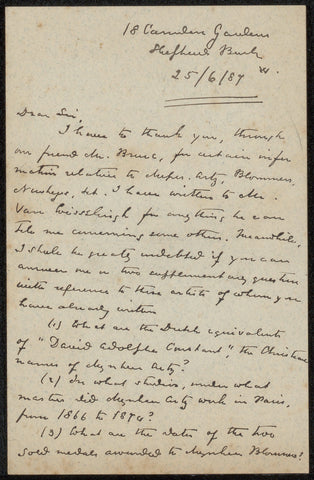 18 Camden Gardens
Shepherds Bush
W.
25/6/87
Dear Sir,
I have to thank you, through
our friend Mr. Bruce, for certain infor
mation relative to Messrs. Artz, Blommers,
Neuhuys, &c. I have written to Mr.
Van Wisselingh for anything he can
tell me concerning some others. Meanwhile,
I shall be greatly indebted if you can
answer me a few supplementary questions
with reference to those artists of whom you
have already written
(1) What are the Dutch equivalents
of "David Adolphe Constant", the Christian
names of Mynheer Artz?
(2) In what studios, under what
masters did Mynheer Artz work in Paris,
from 1866 to 1874?
(3) What are the dates of the two
gold medals awarded to Mynheer Blommers?